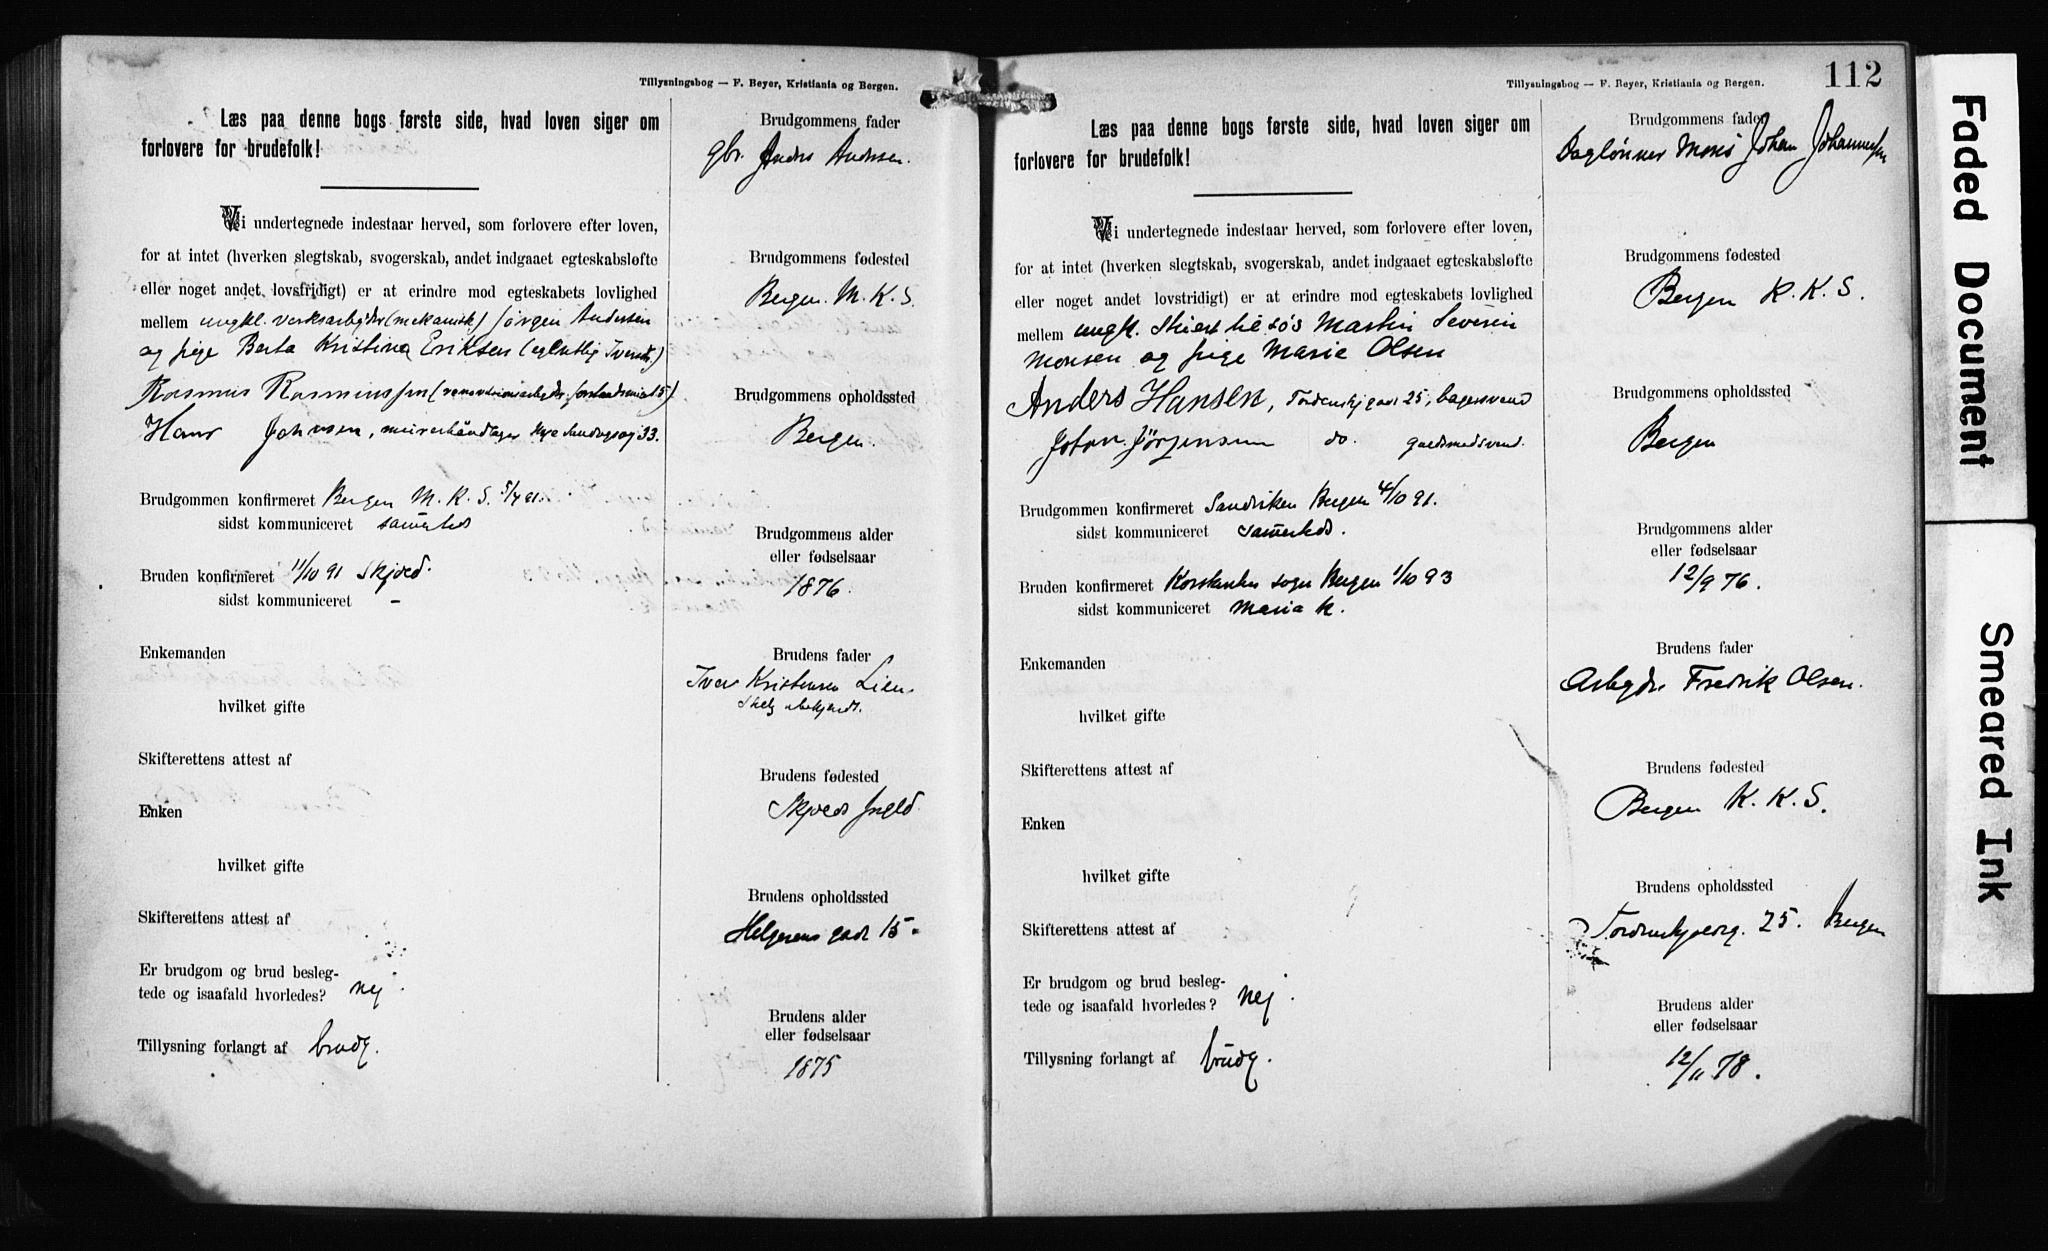 Tillysningsbog — F. Beyer, Kristiania og Bergen.
Læs paa denne bogs første side, hvad loven siger om
forlovere for brudefolk!
Vi undertegnede indestaar herved, som forlovere efter loven,
for at intet (hverken slegtskab, svogerskab, andet indgaaet egteskabsløfte
eller noget andet lovstridigt) er at erindre mod egteskabets lovlighed
mellem ungkl. verksarbejder (mekanisk) Jørgen Andersen
og pige Berta Kristina Eriksen (egentlig Iversd.)
Rasmus Rasmussen
Hans Johnsen, murerhåndlager Nye Sandvigsvej 33.
Brudgommen konfirmeret Bergen M. K. S. 5/4 91.
sidst kommuniceret samesteds
Bruden konfirmeret 11/10 91 Skjold.
sidst kommuniceret –
Enkemanden
hvilket gifte
Skifterettens attest af
Enken
hvilket gifte
Skifterettens attest af
Er brudgom og brud besleg-
tede og isaafald hvorledes? nej.
Tillysning forlangt af brudg.
Brudgommens fader
gbr. Anders Andersen.
Brudgommens fødested
Bergen. M. K. S.
Brudgommens opholdssted
Bergen.
Brudgommens alder
eller fødselsaar
1876.
Brudens fader
Iver Kristensen Lien
Brudens fødested
Skjolds prgld.
Brudens opholdssted
Helgesens gade 15.
Brudens alder
eller fødselsaar
1875
Tillysningsbog — F. Beyer, Kristiania og Bergen.
112
Læs paa denne bogs første side, hvad loven siger om
forlovere for brudefolk!
Vi undertegnede indestaar herved, som forlovere efter loven,
for at intet (hverken slegtskab, svogerskab, andet indgaaet egteskabsløfte
eller noget andet lovstridigt) er at erindre mod egteskabets lovlighed
mellem ungk. Stuert til søs Martin Severin
Monsen og pige Marie Olsen
Anders Hansen, Tordenskj gade 25, bagersvend
Johan Jørgensen do. guldsmedsvend.
Brudgommen konfirmeret Sandviken Bergen 4/10 91.
sidst kommuniceret samesteds.
Bruden konfirmeret Korskirken sogn Bergen 1/10 93
sidst kommuniceret Maria K.
Enkemanden
hvilket gifte
Skifterettens attest af
Enken
hvilket gifte
Skifterettens attest af
Er brudgom og brud besleg-
tede og isaafald hvorledes? nej.
Tillysning forlangt af brudg.
Brudgommens fader
Daglønner Mons Johan Johannesen
Brudgommens fødested
Bergen K. K. S.
Brudgommens opholdssted
Bergen
Brudgommens alder
eller fødselsaar
12/9 76.
Brudens fader
Arbejdr. Fredrik Olsen.
Brudens fødested
Bergen K. K. S.
Brudens opholdssted
Tordenskjoldsg. 25. Bergen
Brudens alder
eller fødselsaar
12/11 78.
Faded Document
Smeared Ink